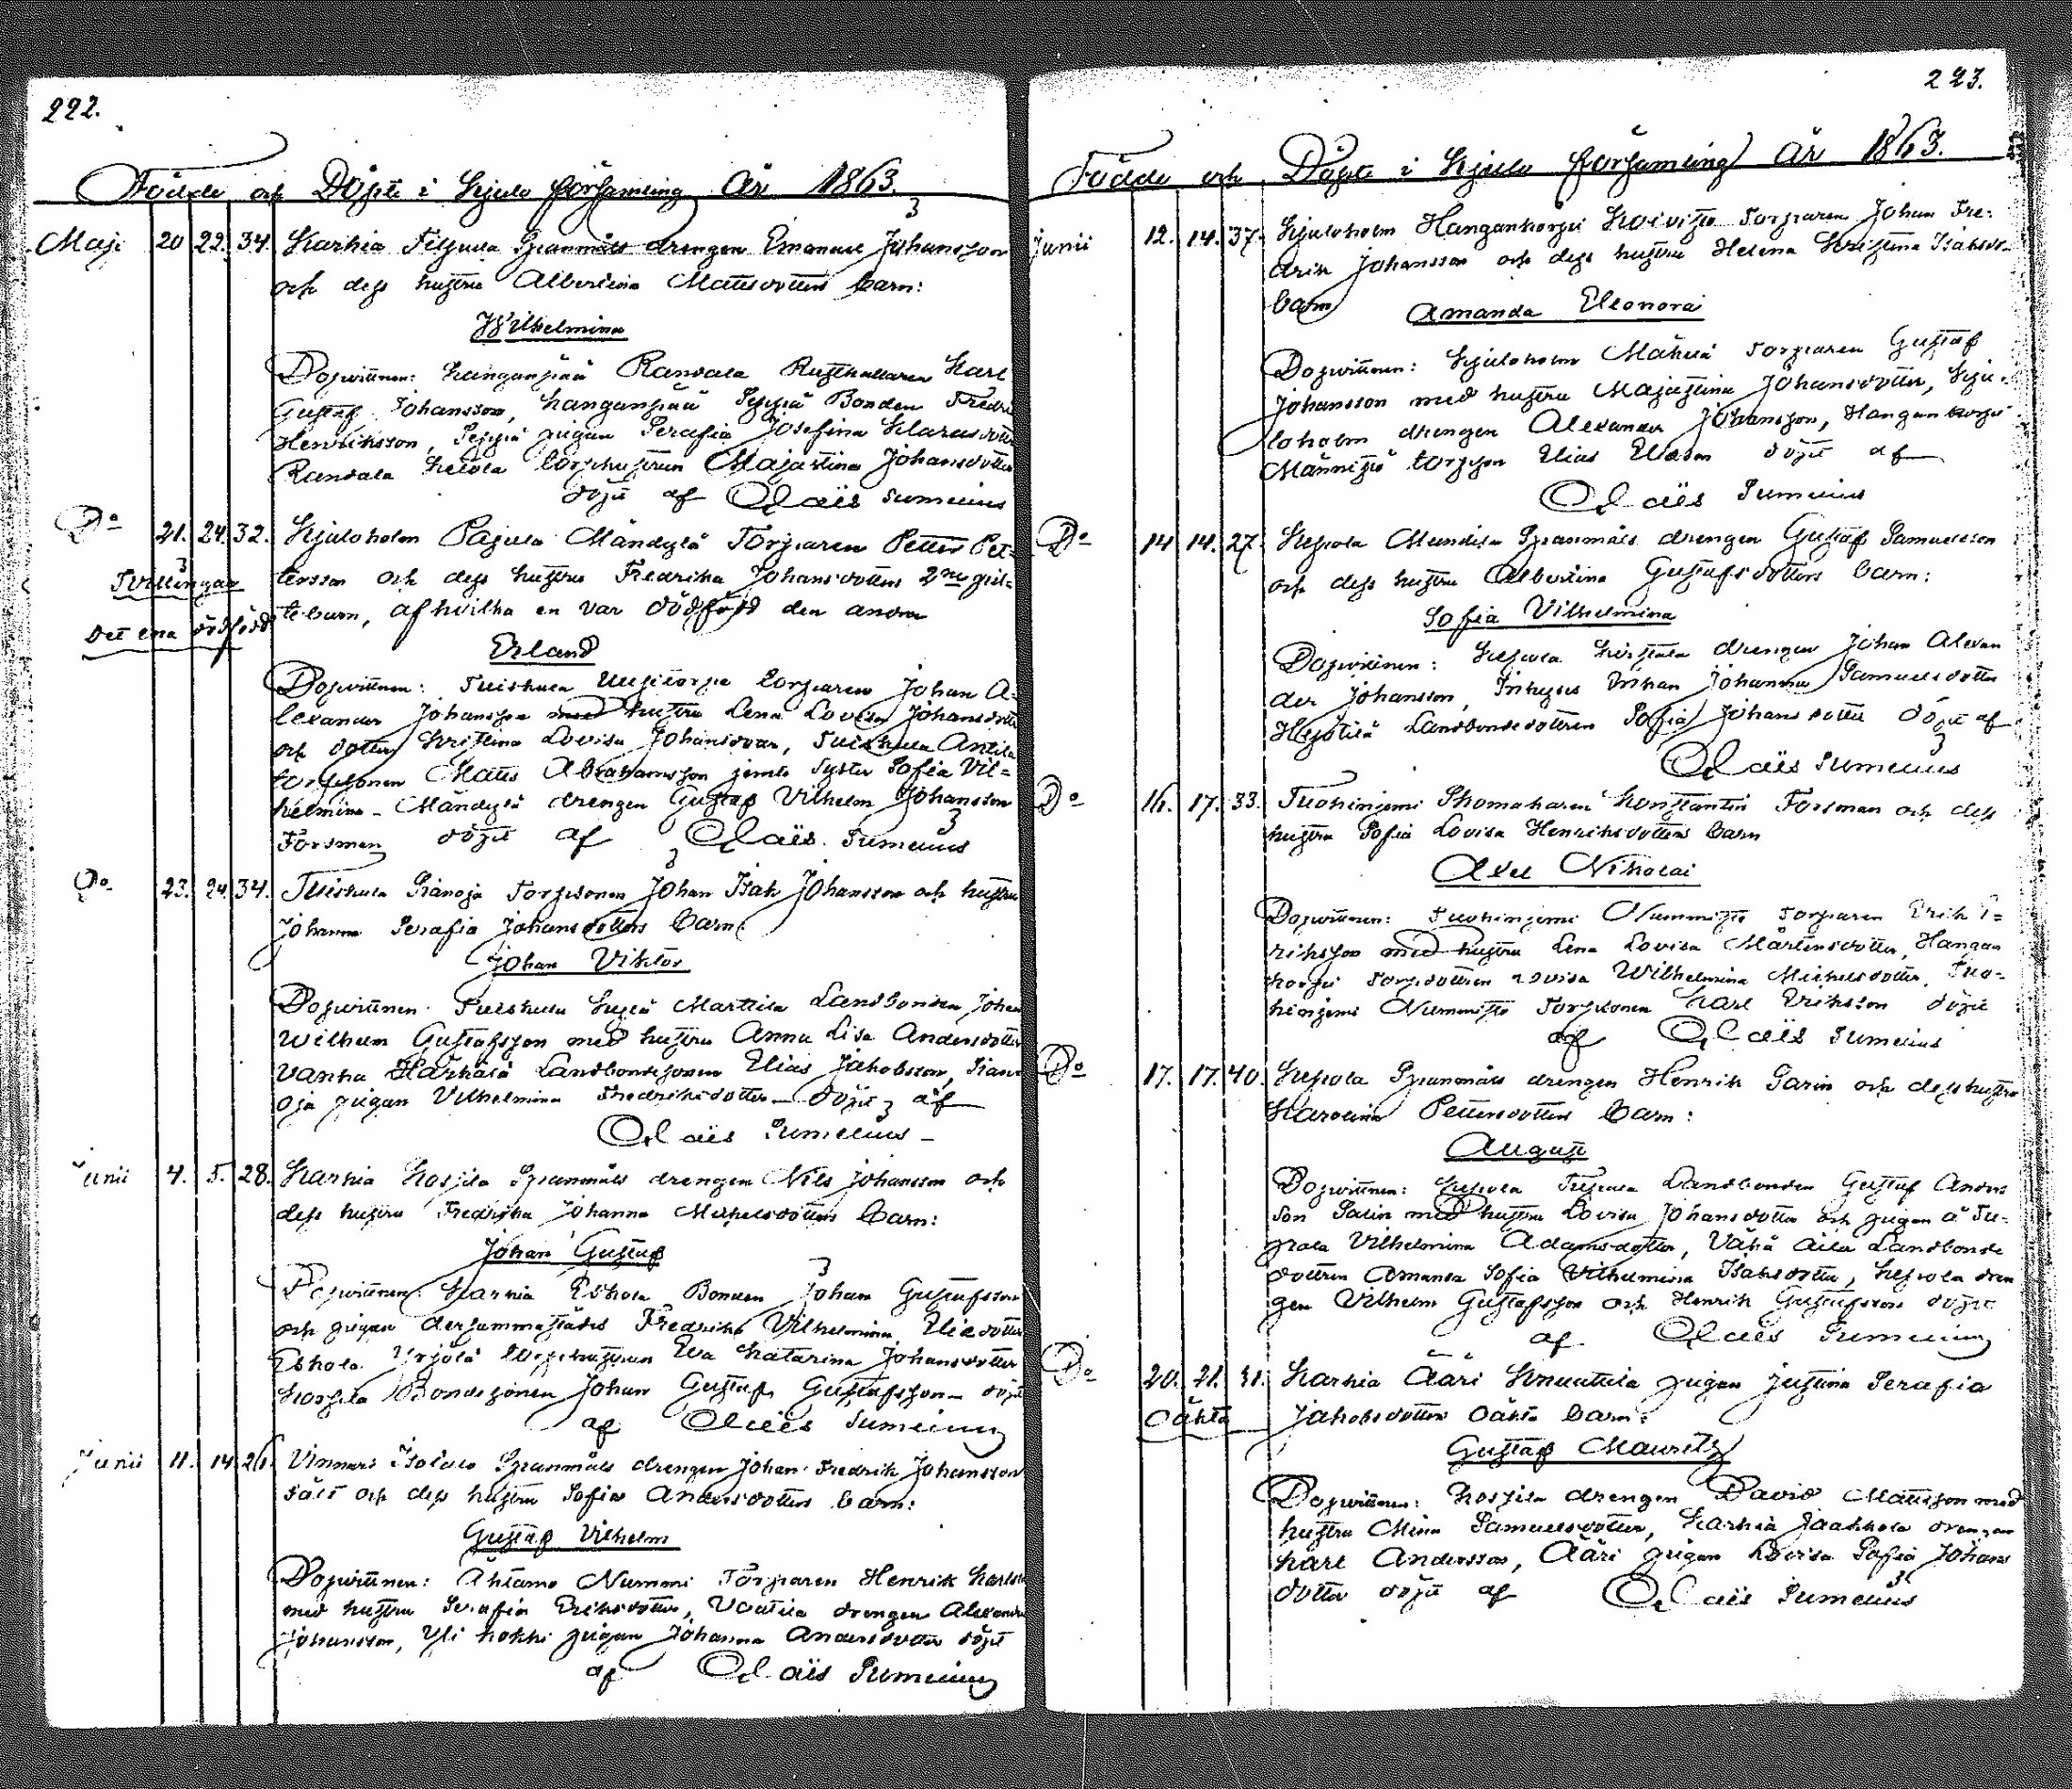 222.
Födde och Döpte i Kjulo församling År 1863.
Maji 20 22. 34. Karhia Filpula Spanmåls drengen Emanuel Johansson
och dess hustru Albertina Mattsdotters barn:
Wilhelmina
Dopvittnen: Kanganpää Ransala Rusthållaren Karl
Gustaf Johansson, Kanganpää Seppä Bonden Fredr
Henriksson, Seppä pigan Serafia Josefina Klarasdotter
Ransala Ketola torphustrun Majastina Johansdotter
döpt af Claës Sumelius
Do 21. 24. 32. Kjuloholm Pajula Mändylä Torparen Petter Pet-
Tvillingar
tersson och dess hustru Fredrika Johansdotters 2ne gil-
det ena dödfödt
te barn, af hvilka en var dödfödd den andra
Erland
Dopvittnen: Tuiskula Uusitorpa torparen Johan A-
lexander Johansson med hustru Lena Lovisa Johansdotter
och dotter Kristina Lovisa Johansdotter, Tuiskula Antila
torpsonen Matts Abrahamsson jemte syster Sofia Vil-
helmina - Mändylä drengen Gustaf Vilhelm Johansson
Forsman döpt af Claës Sumelius
Do 23. 24. 34. Tuiskula Pianoja Torpsonen Johan Isak Johansson och hustru
Johanna Serafia Johansdotters barn:
Johan Viktor
Dopvittnen. Tuiskula Marttila Landbonden Johan
Wilhelm Gustafsson med hustru Anna Lisa Andersdotter
Vanha Härkälä Landbondesonen Elias Jakobsson, Pian-
oja pigan Vilhelmina Fredriksdotter - döpt af
Claës Sumelius -
Junii 4. 5. 28. Karhia Kospila Spanmåls drengen Nils Johansson och
dess hustru Fredrika Johanna Mickelsdotters barn:
Johan Gustaf
Dopvittnen: Karhia Eskola Bonden Johan Gustafsson
och pigan dersammastädes Fredrika Vilhelmina Eliedotter
Eskola Yrjölä torphustrun Eva Katarina Johansdotter
Kospila Bondesonen Johan Gustaf Gustafsson - döpt
af Claës Sumelius
Junii 11. 14. 26. Vinnari Isotalo Spanmåls drengen Johan Fredrik Johansson
och dess hustru Sofia Andersdotters barn:
Gustaf Vilhelm
Dopvittnen: Ahtamo Nummi Torparen Henrik Karlsson
med hustru Serafia Eriksdotter, Voitila drengen Alexander
Johansson, Yli kokki pigan Johanna Andersdotter döpt
af Claës Sumelius
223.
Födde och Döpte i Kjulo församling År 1863.
Junii 12. 14. 37. Kjuloholm Hangankorpi Koivisto Torparen Johan Fre-
drik Johansson och dess hustru Helena Kristina Isaksdr
barn
Amanda Eleonora
Dopvittnen: Kjuloholm Mäkilä Torparen Gustaf
Johansson med hustru Majastina Johansdotter, Kju-
loholm drengen Alexander Johansson, Hangankorpi
Männistö torpson Elias Eliasson döpt af
Claës Sumelius
Do 14 14. 27. Kepola Mundila Spanmåls drengen Gustaf Samuelsson
och dess hustru Albertina Gustafsdotters barn:
Sofia Vilhelmina
Dopvittnen: Kepola drengen Johan Alexan
der Johansson, Inhyses Enkan Johanna Samuelsdotter
Landbondedottren Sofia Johansdotter döpt af
Claës Sumelius
Do 16. 17. 33. Tuohiniemi Skomakaren Konstantin Forsman och dess
hustru Sofia Lovisa Henriksdotters barn
Axel Nikolai
Dopvittnen: Tuohiniemi Nummisto Torparen Erik E-
riksson med hustru Lena Lovisa Mårtensdotter, Hangan
korpi Torpdottren Lovisa Wilhelmina Mickelsdotter, Tuo-
hiniemi Nummisto Torpsonen Karl Eriksson döpt
af Claës Sumelius
Do 17. 17. 40. Kepola Spanmåls drengen Henrik Garin och dess hustru
Karolina Pettersdotters barn:
August
Dopvittnen: Kepola Landbonden Gustaf Anders
son Salin med hustru Lovisa Johansdotter och pigan
Vilhelmina Adamsdotter, Vähä Äilä Landbonde
dottren Amanda Sofia Vilhelmina Isaksdotter, Kepola dren
gen Vilhelm Gustafsson och Henrik Gustafsson döpt
af Claës Sumelius
Do 20. 21. 31. Karhia Ääri Knuuttila pigan Justina Serafia
Oäkta
Jakobsdotters oäkta barn:
Gustaf Mauritz
Dopvittnen: Kospila drengen David Mattsson med
hustru Mina Samuelsdotter, Karhia Jaakkola drengen
Karl Andersson, Ääri pigan Lovisa Sofia Johans
dotter döpt af Claës Sumelius